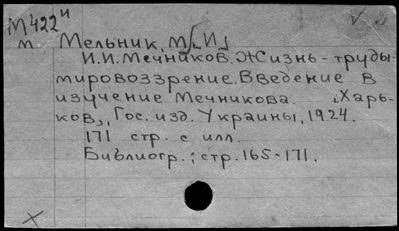 М422и
м Мельник, М[.И.]
И.И.Мечников. Жизнь-труды-
мировоззрение. Введение в
изучение Мечникова. [Харь-
ков], Гос. изд. Украины, 1924.
171 стр. с илл.
Библиогр.: стр. 165-171.